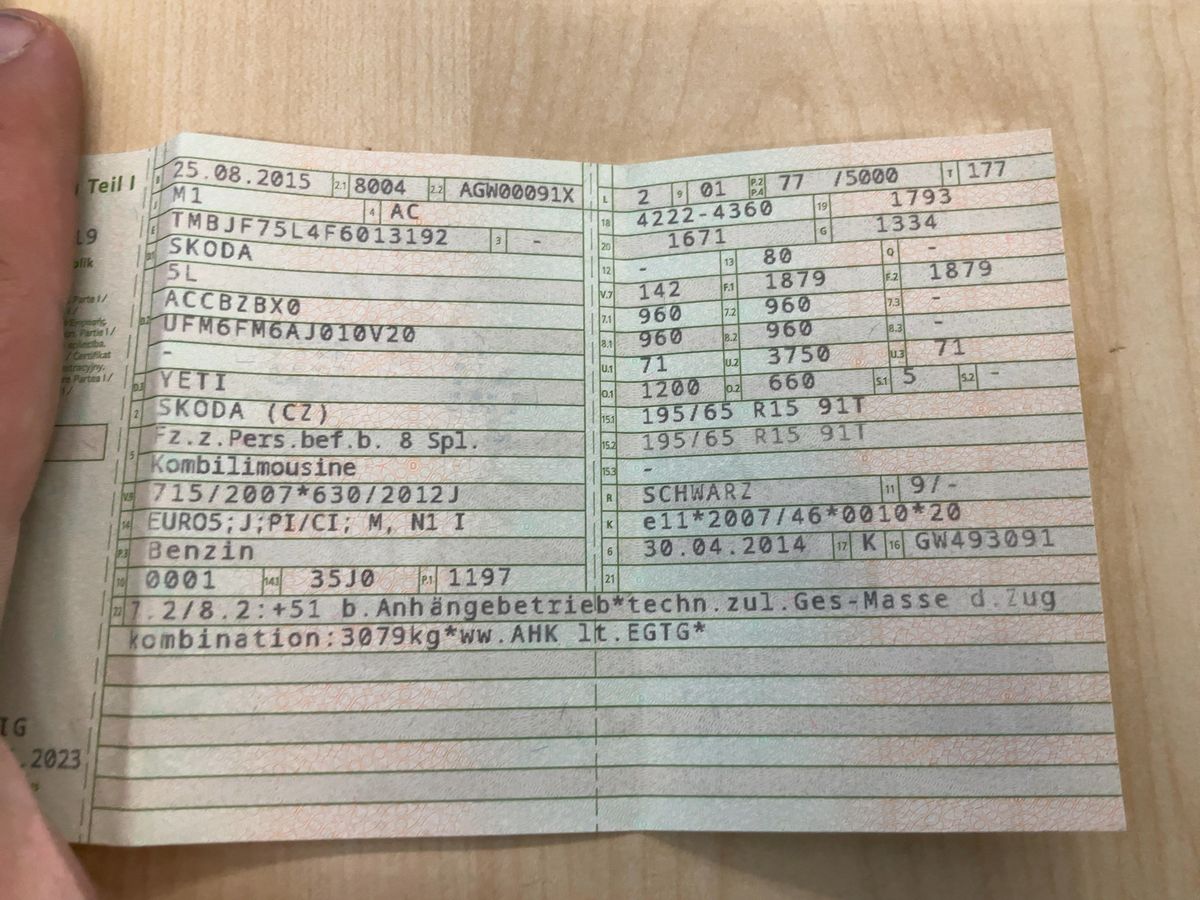 Teil I
B 25.08.2015 2.1 8004 2.2 AGW00091X
J M1 4 AC
E TMBJF75L4F6013192 3 -
D.1 SKODA
5L
D.2 ACCBZBX0
UFM6FM6AJ010V20
-
D.3 YETI
2 SKODA (CZ)
5 Fz.z.Pers.bef.b. 8 Spl.
Kombilimousine
V.9 715/2007*630/2012J
14 EURO5;J;PI/CI; M, N1 I
P.3 Benzin
10 0001 14.1 35J0 P.1 1197
L 2 9 01 P.2 P.4 77 /5000 T 177
18 4222-4360 19 1793
20 1671 G 1334
12 - 13 80 Q -
V.7 142 F.1 1879 F.2 1879
7.1 960 7.2 960 7.3 -
8.1 960 8.2 960 8.3 -
U.1 71 U.2 3750 U.3 71
O.1 1200 O.2 660 S.1 5 S.2 -
15.1 195/65 R15 91T
15.2 195/65 R15 91T
15.3 -
R SCHWARZ 11 9/-
K e11*2007/46*0010*20
6 30.04.2014 17 K 16 GW493091
21
22 7.2/8.2:+51 b.Anhängebetrieb*techn.zul.Ges-Masse d.Zug
kombination:3079kg*ww.AHK lt.EGTG*
.2023